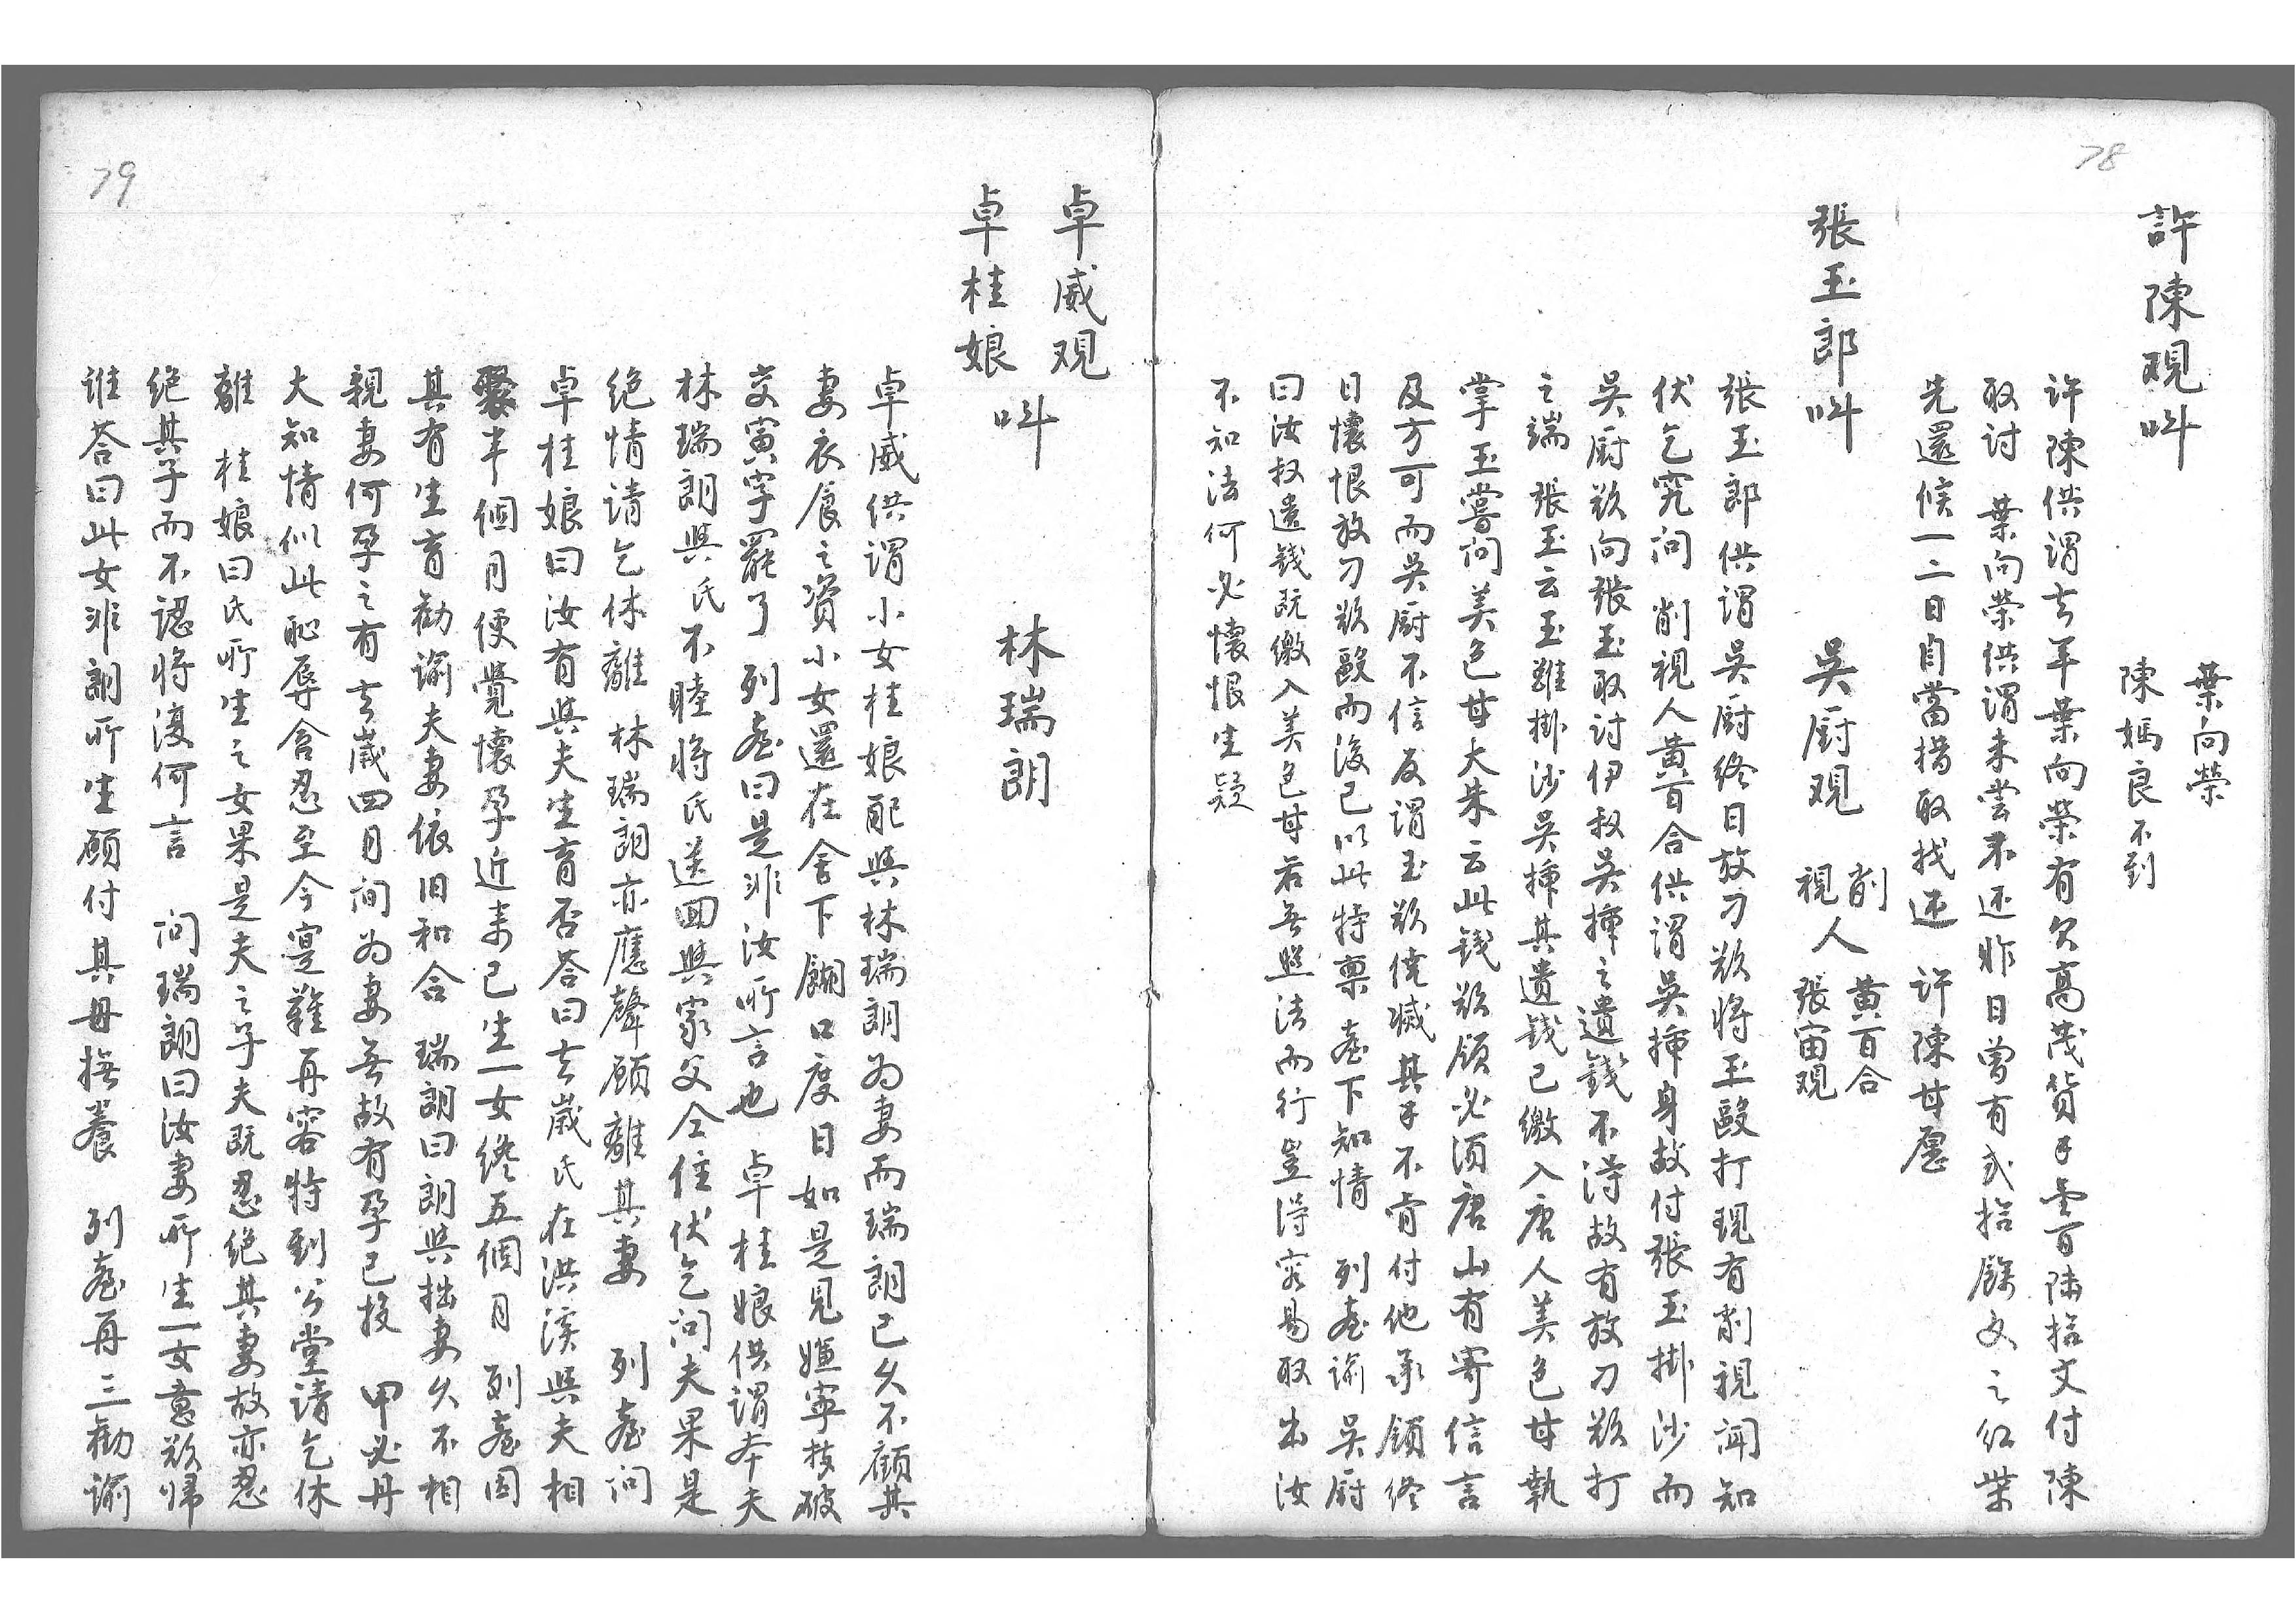 78
葉向榮
許陳观呌
陳媽良不到
許陳供謂去年葉向榮有欠高茂貨艮壹百陸拾文付陳
取討 葉向榮供謂未嘗不还昨日曾有弍拾餘文之紅柴
先還候一二日自當措取找还 許陳甘愿
張玉郎呌 吳厨观
削視人
黃百合
張宙观
張玉郎供謂吳厨終日放刁欲將玉毆打現有削視聞知
伏乞究问 削視人黃百合供謂吳揷身故付張玉掛沙而
吳厨欲向張玉取討伊叔吳揷之遺錢不得故有放刁欲打
之端 張玉云玉雖掛沙吳揷其遺錢已繳入唐人美色甘執
掌玉嘗问美色甘大朱云此錢欲領必須唐山有寄信言
及方可而吳厨不信反謂玉欲僥減其艮不肯付他承領終
日懷恨放刁欲毆而後已以此特禀 臺下知情 列臺諭吳厨
曰汝叔遺錢既繳入美色甘若無照法而行豈得容易取出汝
不知法何必懷恨生疑
卓威观
卓桂娘
呌 林瑞朗
卓威供謂小女桂娘配與林瑞朗为妻而瑞朗已久不顧其
妻衣食之資小女還在舍下餬口度日如是見嫌寧技破
交寅字罷了 列臺曰是非汝所言也 卓桂娘供謂本夫
林瑞朗與氏不睦將氏送回與家父仝住伏乞问夫果是
绝情請乞休離 林瑞朗亦應聲願離其妻 列臺问
卓桂娘曰汝有與夫生育否答曰去歲氏在洪溪與夫相
聚半個月便覺懷孕近来已生一女終五個月 列臺因
其有生育勸諭夫妻依旧和合 瑞朗曰朗與拙妻久不相
親妻何孕之有去歲四月间为妻無故有孕已投 甲必丹
大知情似此恥辱含忍至今寔難再容特到公堂請乞休
離 桂娘曰氏所生之女果是夫之子夫既忍绝其妻故亦忍
绝其子而不認將復何言 问瑞朗曰汝妻所生一女意欲归
谁答曰此女非朗所生願付其母撫養 列臺再三勸諭
79